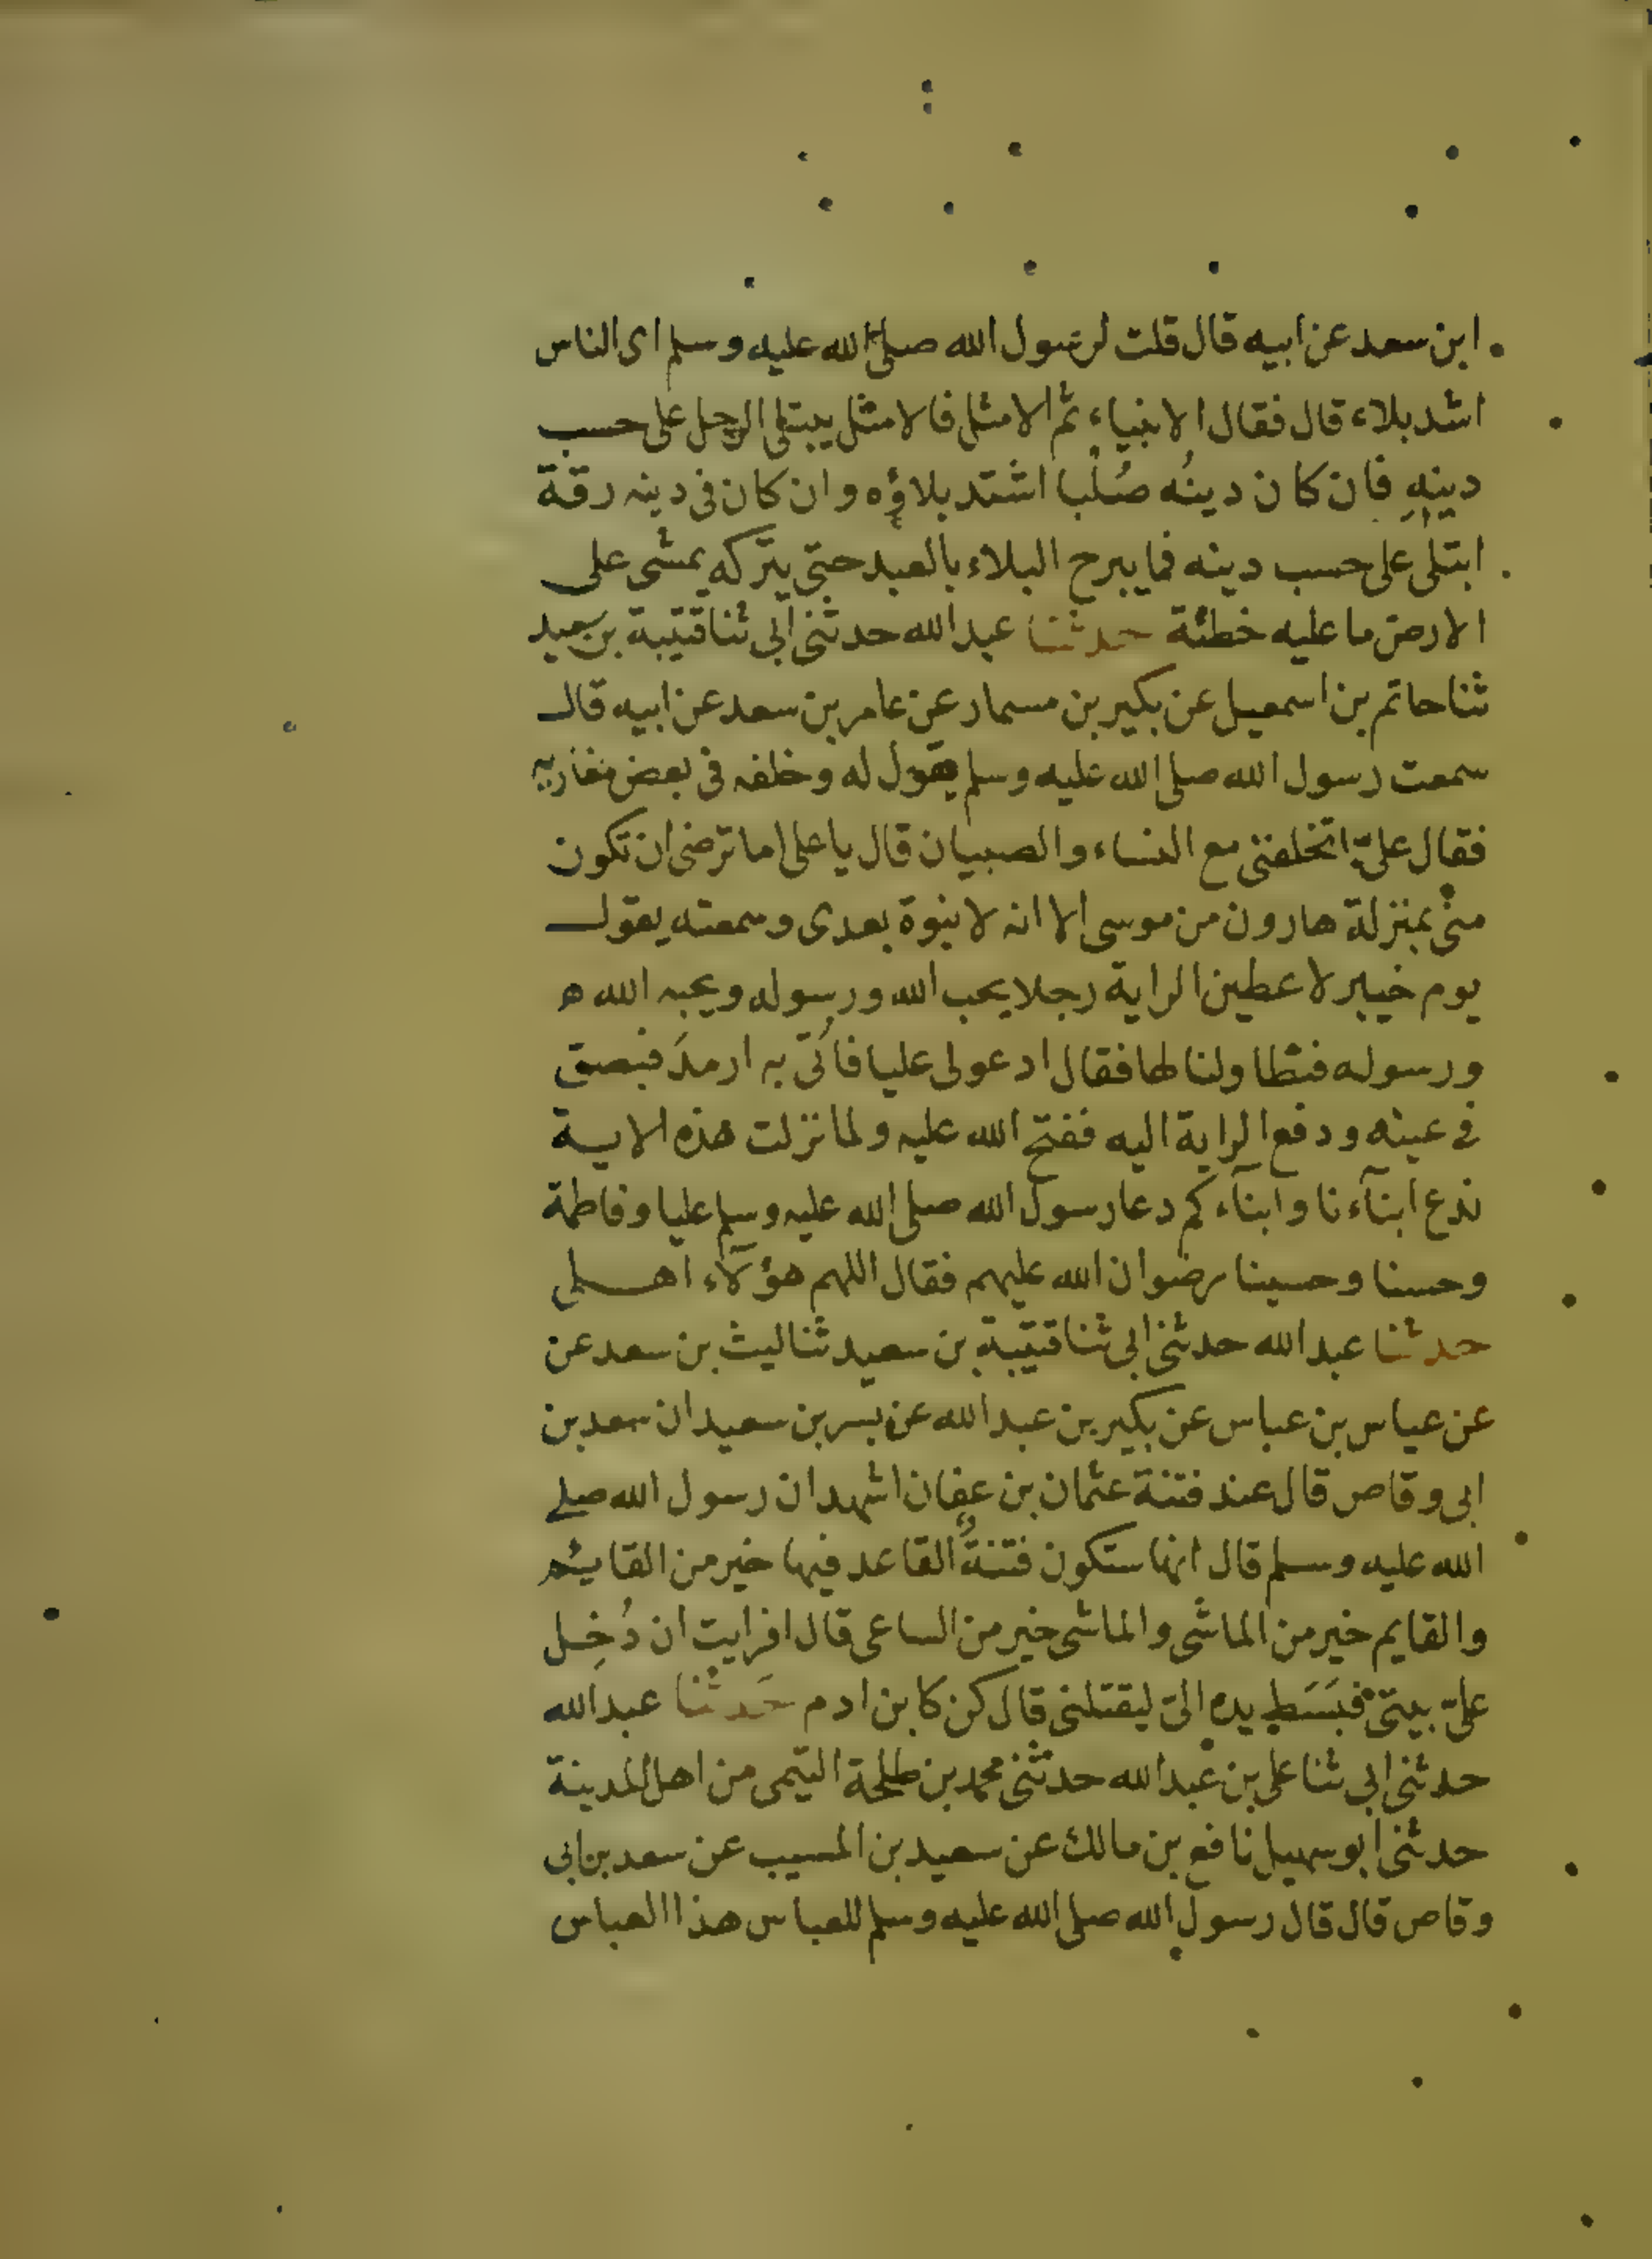 ابن سعد عن ابيه قال قلت لرسول الله صلى الله عليه وسلم اى الناس
اشد بلاء قال فقال الانبياء ثم الامثل فالامثل يبتلى الرجل على حسب
دينهِ فان كان دينُه صُلْبا اشتد بلاؤه وان كان فى دينه رقة
ابتلى على حسب دينه فما يبرح البلاء بالعبد حتى يتركه يمشى على
الارض ما عليه خطئة حدثنا عبد الله حدثنى ابى ثنا قتيبة بن سعيد
ثنا حاتم بن اسمعيل عن بكير بن مسمار عن عامر بن سعد عن ابيه قال
سمعت رسول الله صلى الله عليه وسلم يقول له وخلفه فى بعض مغازيه
فقال علىّ اتخلفنى مع النساء والصبيان قال يا على اما ترضى ان تكون
منى بمنزلة هارون من موسى الا انه لا نبوة بعدى وسمعته يقول
يوم خيبر لاعطين الراية رجلا يحب الله ورسوله ويحبه الله
ورسوله فتطاولنا لها فقال ادعو لى عليا فاُتى به ارمدَ فبصق
فى عينه ودفع الراية اليه ففتح الله عليه ولما نزلت هذه الاية
ندع ابنآءنا وابنآءكم دعا رسول الله صلى الله عليه وسلم عليا وفاطمة
وحسنا وحسينا رضوان الله عليهم فقال اللهم هؤلآء اهلى
حدثنا عبد الله حدثنى ابى ثنا قتيبة بن سعيد ثنا ليث بن سعد عن
عن عياس بن عباس عن بكير بن عبد الله عن بسر بن سعيد ان سعد بن
ابى وقاص قال عند فتنة عثمان بن عفان اشهد ان رسول الله صلى
الله عليه وسلم قال انها ستكون فتنةٌ القاعد فيها خير من القايم
والقايم خير من الماشى والماشى خير من الساعى قال افرايت ان دُخِل
علىّ بيتى فبَسَط يده الىّ ليقتلنى قال كن كابن ادم حَدثنا عبد الله
حدثنى ابى ثنا على بن عبد الله حدثنى محمد بن طلحة التيمى من اهل المدينة
حدثنى ابو سهيل نافع بن مالك عن سعيد بن المسيب عن سعد بن ابى
وقاص قال قال رسول الله صلى الله عليه وسلم للعباس هذا العباس